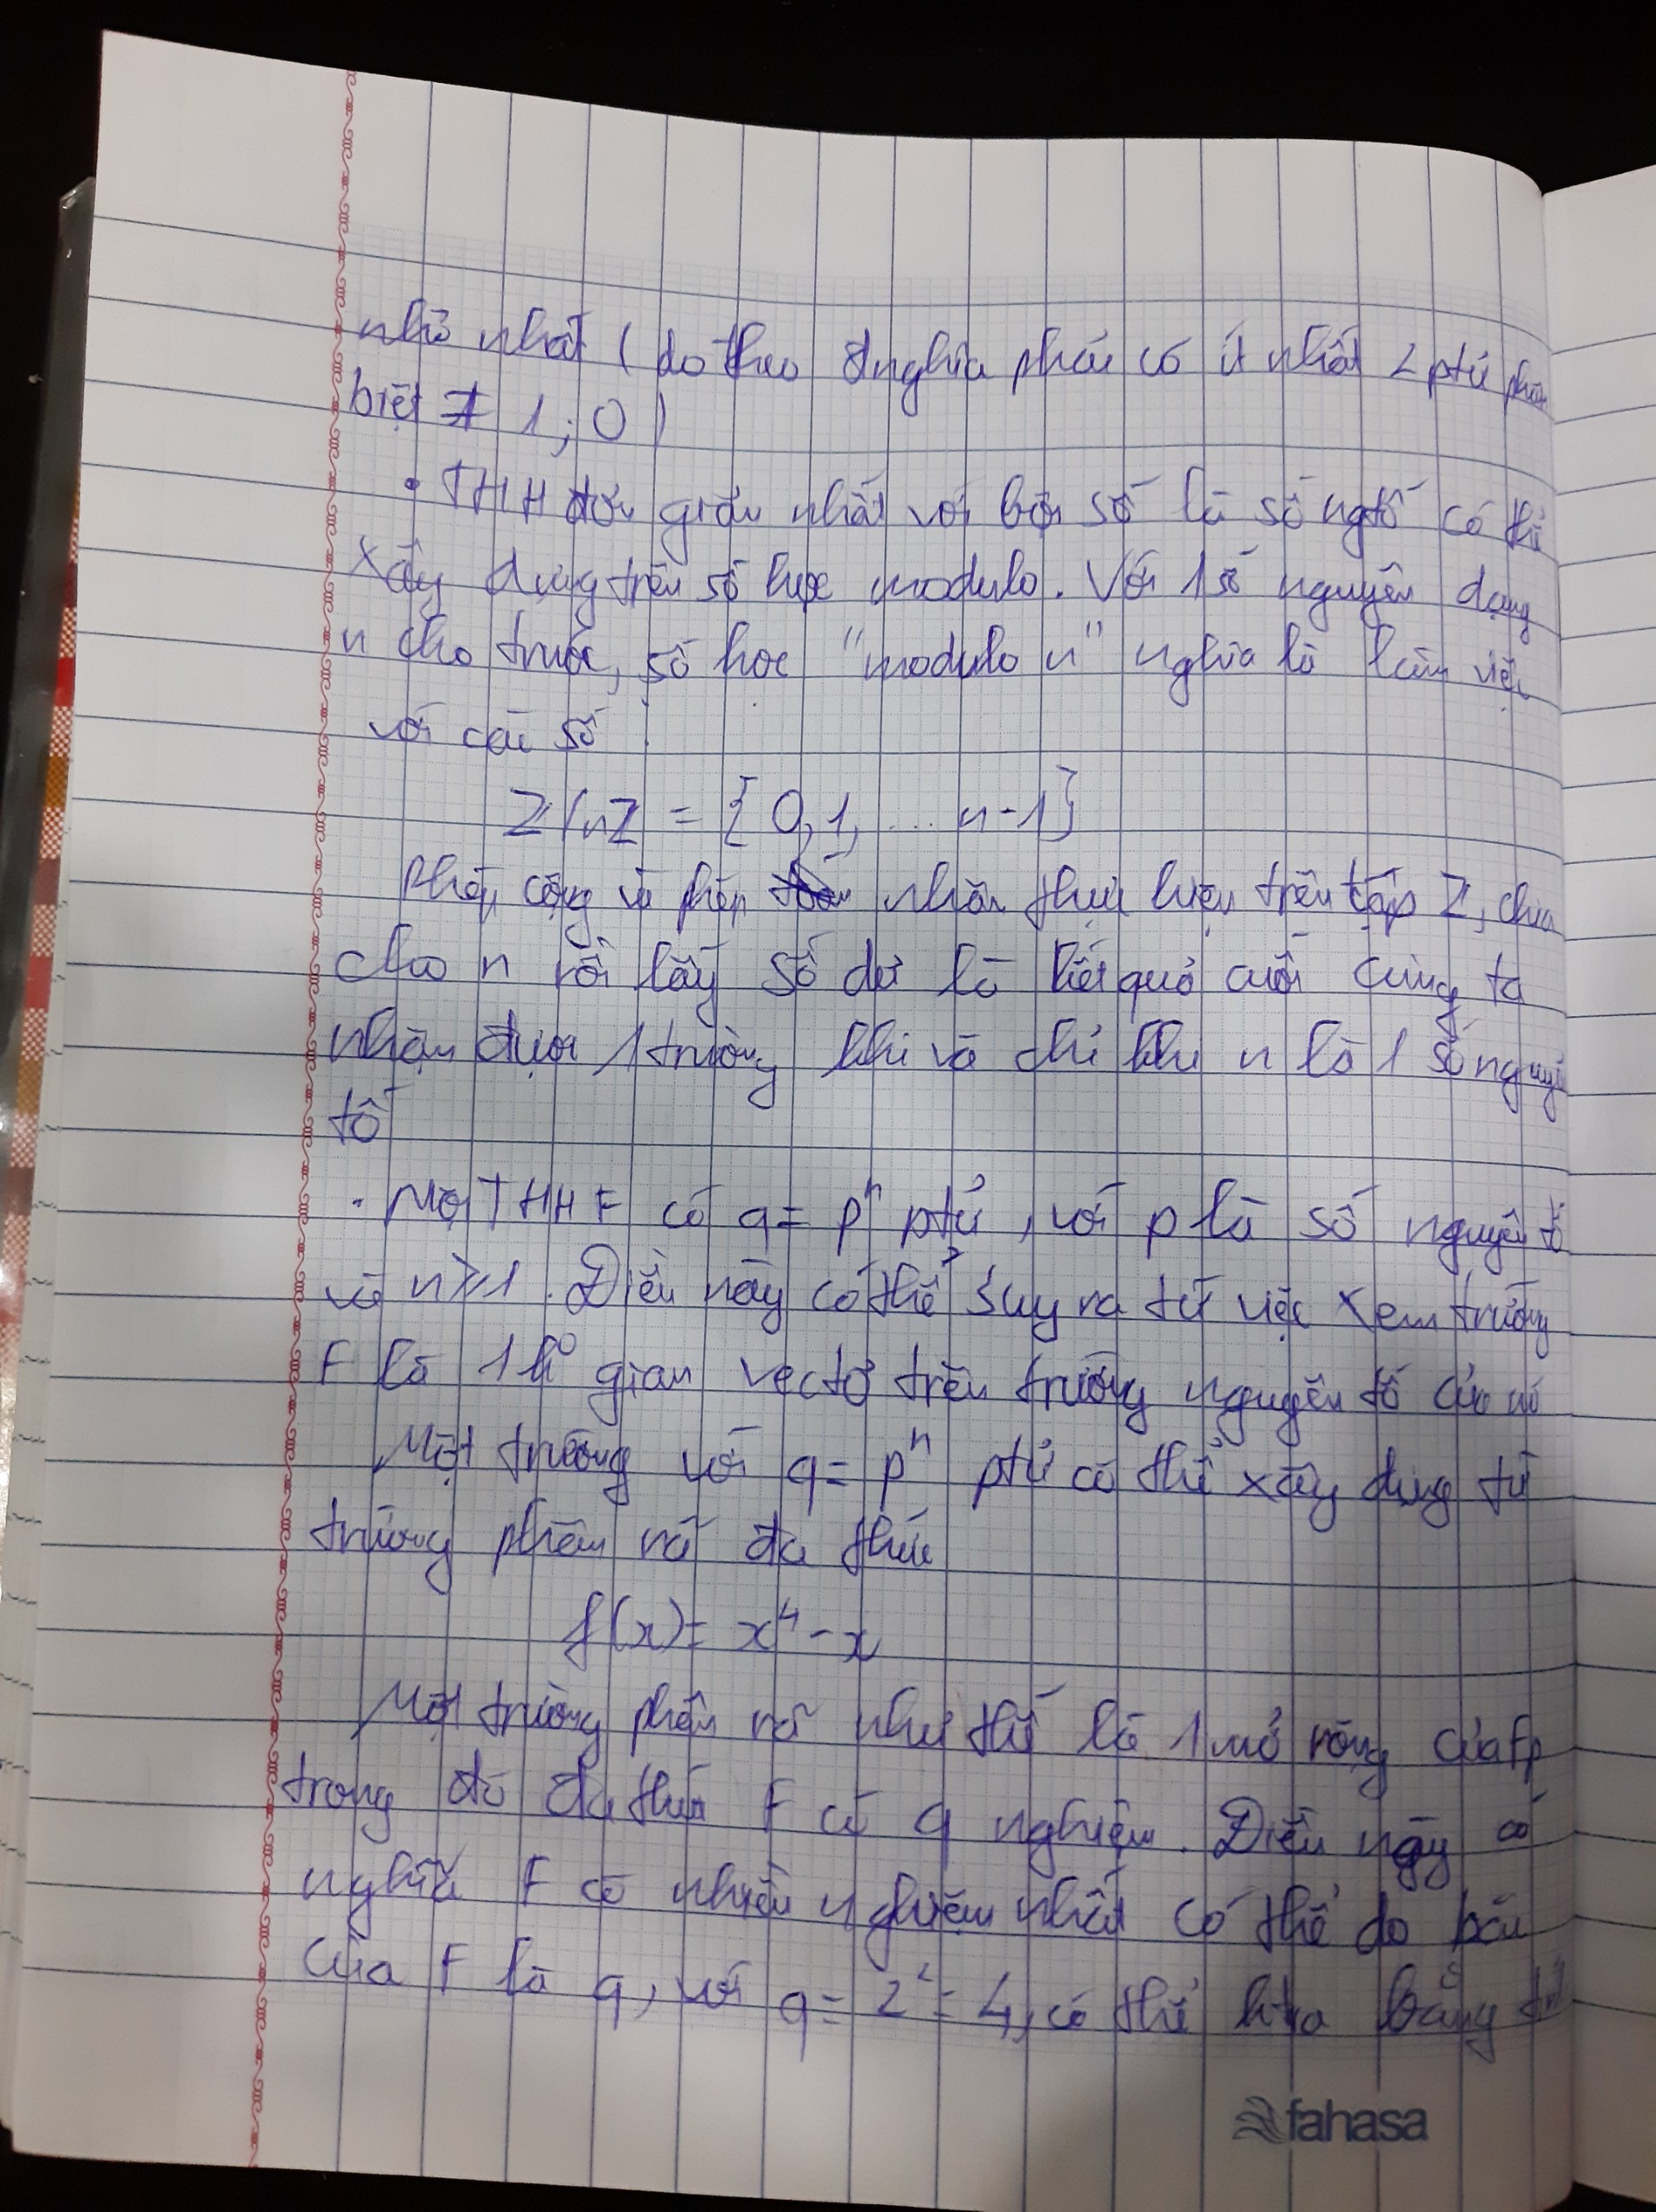 nhỏ nhất ( do theo đnghĩa phải có ít nhất 2 ptử phân
biệt ≠ 1; 0 )
• THH đơn giản nhất với bậc số là số ngtố có thể
xây dựng trên số học modulo. Với 1 số nguyên dạng
n cho trước, số học "modulo n" nghĩa là làm việc
với các số
Z/nZ = { 0, 1, ... n-1}
Phép cộng và phép nhân thực hiện trên tập Z, chia
cho n rồi lấy số dư là kết quả cuối cùng ta
nhận được 1 trường khi và chỉ khi n là 1 số nguyên
tố
. Mọi THH F có q = pⁿ ptử, với p là số nguyên tố
và n ≥ 1. Điều này có thể suy ra từ việc xem trường
F là 1 k⁰ gian vectơ trên trường nguyên tố của nó
Một trường với q = pⁿ ptử có thể xây dựng từ
trường phân rã đa thức
f(x) = x⁴ - x
Một trường phân rã như thế là 1 mở rộng của Fp
trong đó đa thức F có q nghiệm. Điều này có
nghĩa F có nhiều nghiệm nhất có thể do bậc
của F là q, với q = 2² = 4, có thể ktra bằng
fahasa